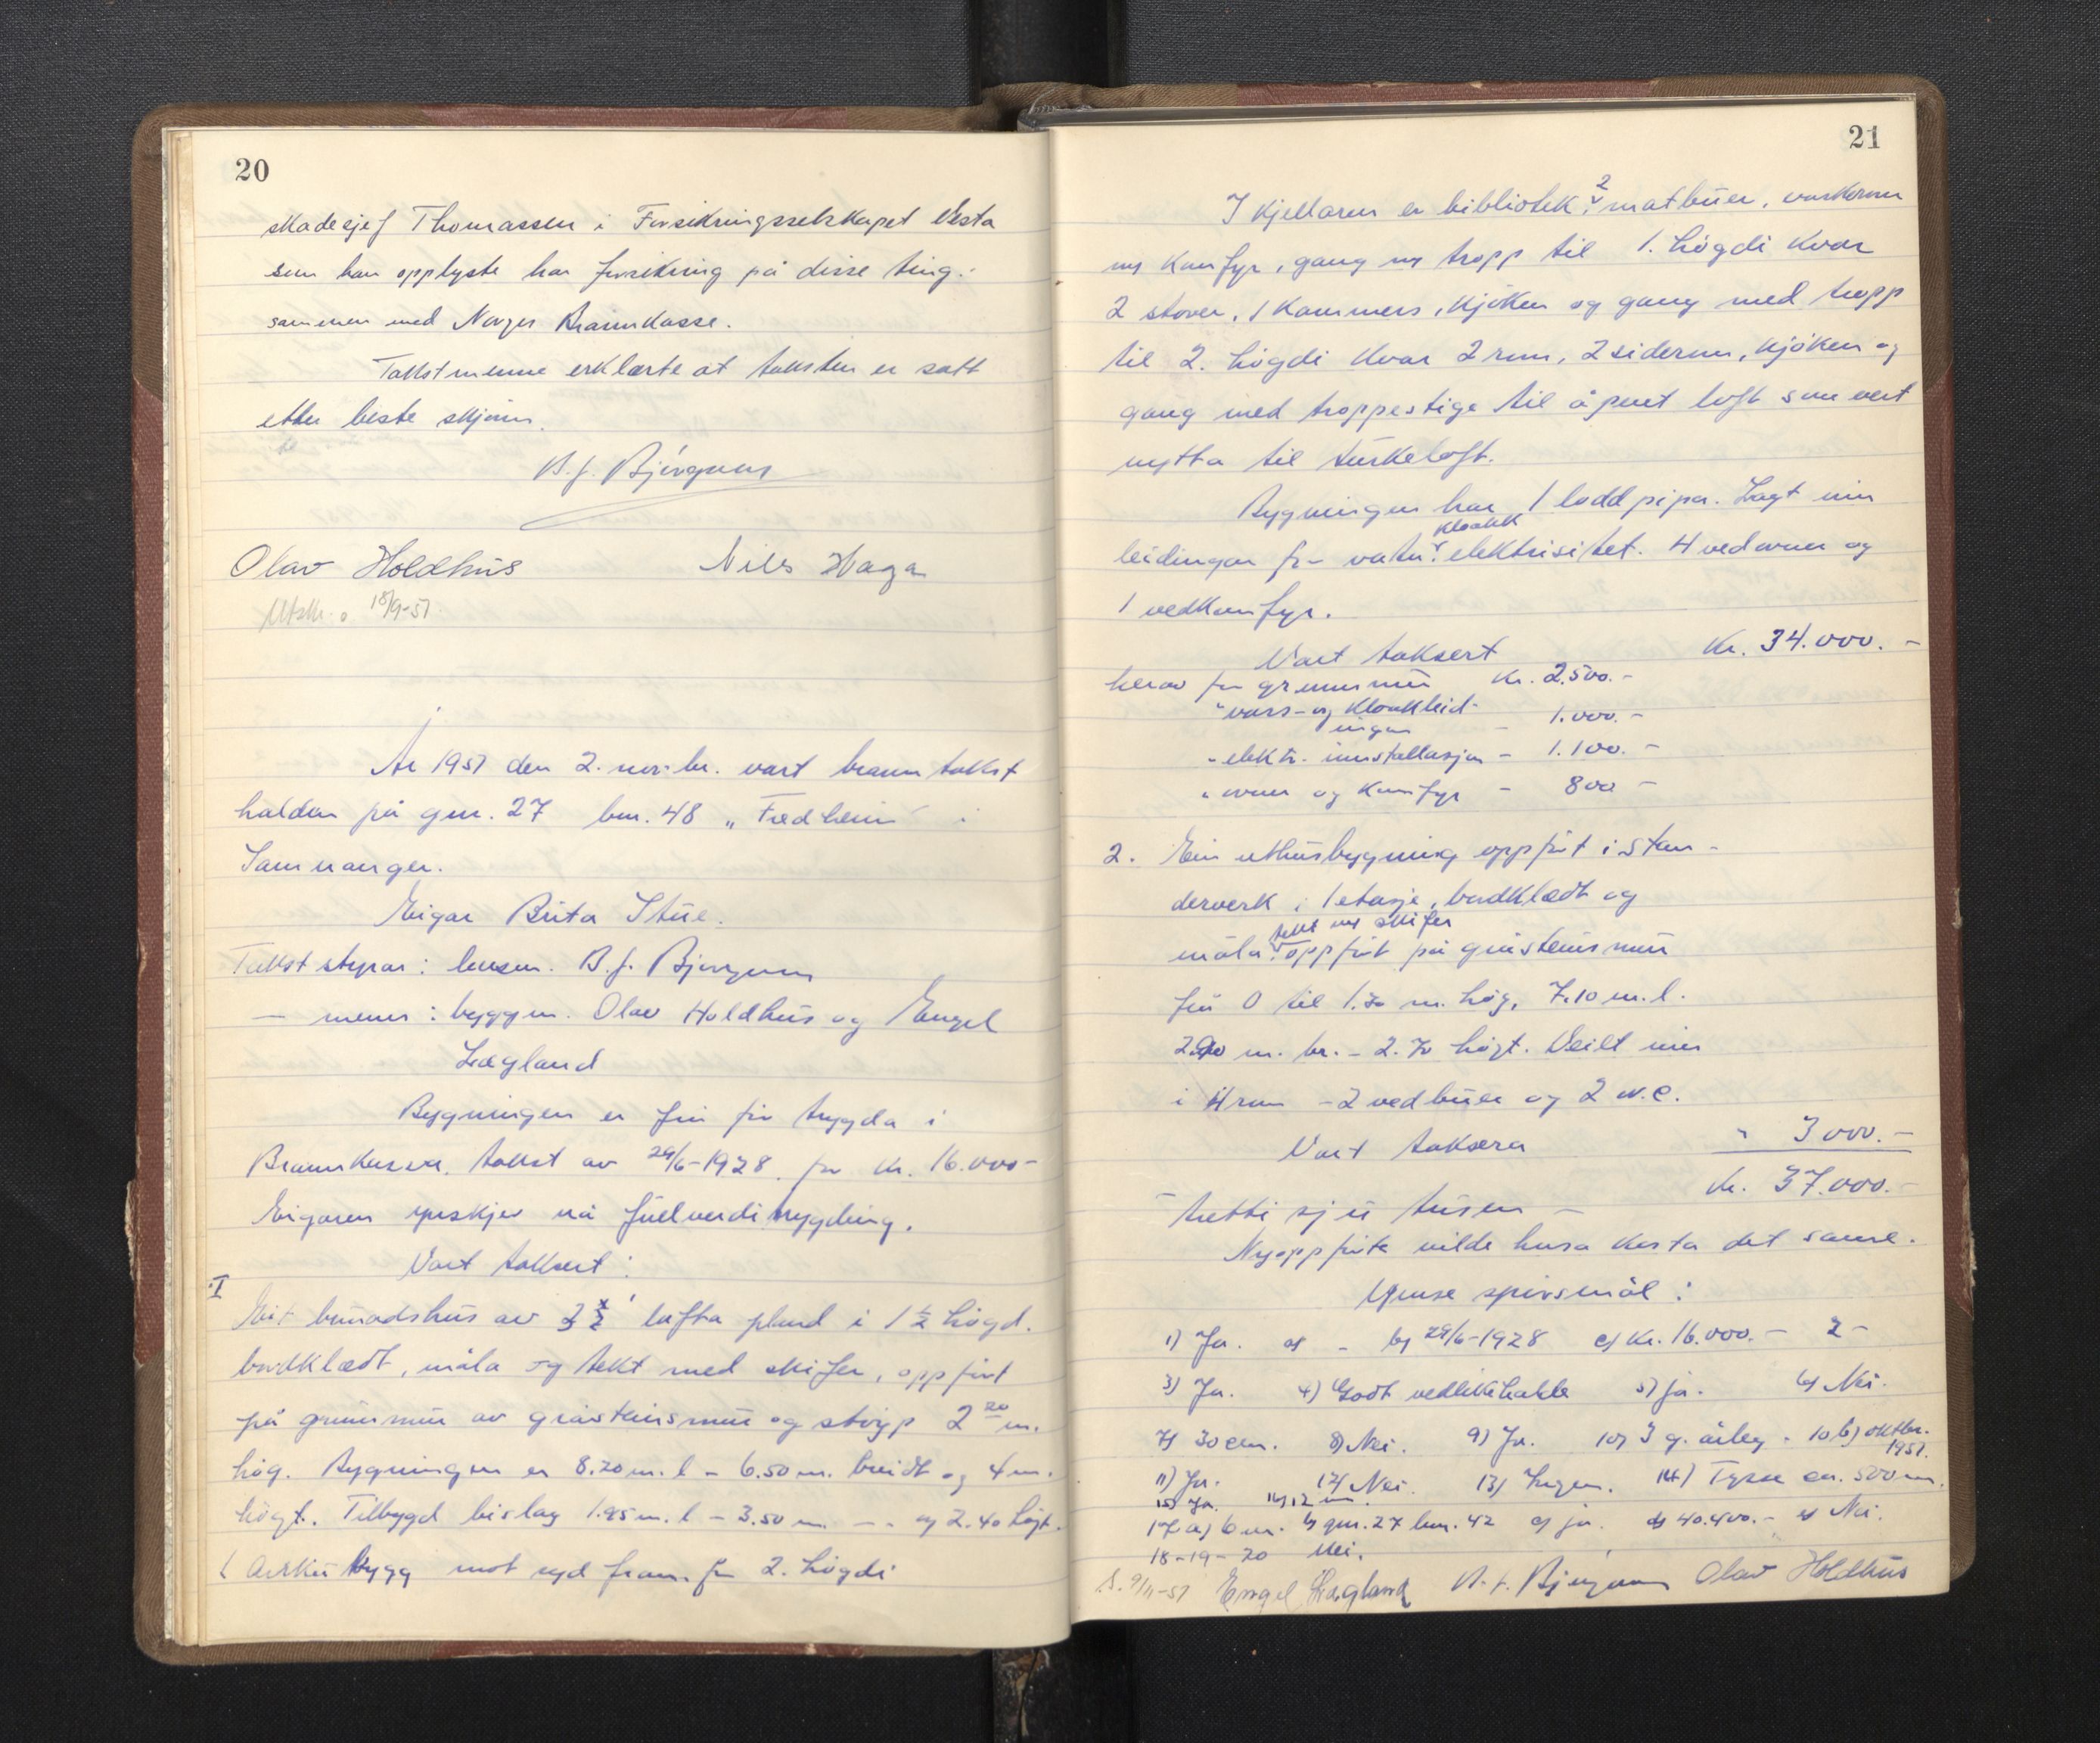 20
skadesjef Thomassen i Forsikringsselskapet Vesta
som han opplyste har forsikring på disse ting.
sammen med Norges Brannkasse.
Takstmenne erklærte at taksten er satt
etter beste skjønn.
B. J. Bjørgum
Olav Holdhus Nils Haga
Utskr. 18/9-51
År 1951 den 2. novbr. vart branntakst
halden på gnr. 27 bnr. 48 „Fredheim" i
Samnanger.
Eigar Brita Stue.
Takststyrar: lensm. B. J. Bjørgum
— menn: byggm. Olav Holdhus og Engel
Lægland
Bygningen er fyrr trygda i
Brannkassa, takst av 29/6-1928 for kr. 16.000-
Eigaren ynskjer nå fullverditrygding.
Vart taksert:
I
Eit bunadshus av lafta plank i 1 1/2 høgd.
bordklædt, måla og tekt med skifer, oppført
på grunnmur av gråsteinsmur og støyp 2 20 m.
høg. Bygningen er 8.20 m. l - 6.50 m. breidt og 4 m.
høgt. Tilbygd bislag 1.95 m. l - 3.50 m. — og 2.40 høgt.
1 arkubygg mot syd fram for 2. høgdi
21
I kjellaren er bibliotek, 2 matbuer, vaskerum
m/ komfyr, gang m/ tropp til 1. høgdi kvar
2 stover, 1 kammers, kjøken og gang med tropp
til 2. høgdi kvar 2 rum, 2 siderum, kjøken og
gang med troppestige til åpent loft som vert
nytta til turkeloft.
Bygningen har 1 lodd pipa. Lagt inn
kloakk
leidingar for vatn, elektrisitet. 4 vedovner og
1 vedkomfyr.
Vart taksert Kr. 34.000.-
herav for grunnmur Kr. 2.500.-
" vass- og kloakkleid-
ingar - 1.000.-
" elektr. innstallasjon - 1.100.-
" ovner og komfyr - 800 -
2. Ein uthusbygning oppført i sten-
derverk i 1 etasje, bordklædt og
tekt m/ skifer
måla oppført på gråsteinsmur
frå 0 til 1.30 m. høg, 7.10 m. l.
2.90 m. br. - 2.70 høgt. Deilt inn
i 4 rum - 2 vedbuer og 2 w.c.
Vart taksera " 3000.-
Kr. 37.000.-
- tretti sju tusen -
Nyoppførte vilde husa kosta det same.
Ymse spørsmål:
1) Ja. a) - b) 29/6-1928 c) Kr. 16.000.- 2 -
3) Ja. 4) Godt vedlikehalde 5) ja. 6) Nei.
7) 30 cm. 8) Nei. 9) Ja. 10) 3 g. årleg. 10 b) oktbr.
1951.
11) Ja. 12) Nei. 13) Ingen. 14) Tysse ca. 500 m.
15) Ja. 16) 12 m.
17 a) 6 m. b) gnr. 27 bnr. 42 c) ja. d) 40.400.- e) Nei.
18-19-20 Nei.
S. 9/11-51 Engel Lægland B. J. Bjørgum Olav Holdhus